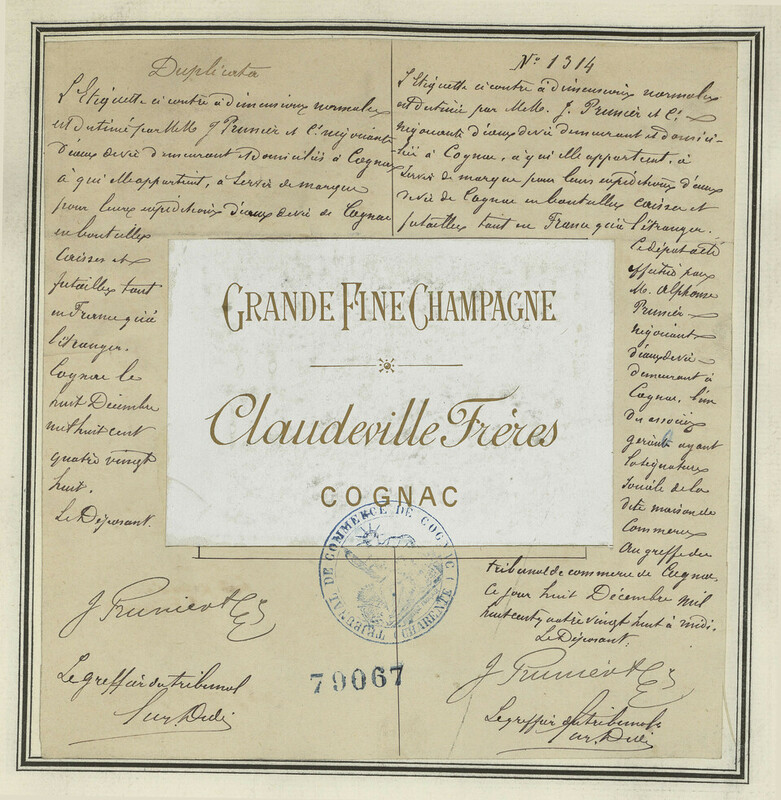 Duplicata
L'Etiquette ci contre à dimensions normales
est destiné par MM J Prunier et Cie négociants
d'eaux de vie demeurant et domiciliés à Cognac
à qui elle appartient, à servir de marque
pour leurs expéditions d'eaux de vie de Cognac
en bouteilles
caisses et
futailles tant
en France qu'à
l'étranger.
Cognac le
huit Décembre
mil huit cent
quatre vingt
huit.
Le Déposant
J Prunier & Cie
Le greffier du tribunal
No 1314
L'Etiquette ci contre à dimensions normales
est destiné par MM. J. Prunier et Cie
négociants d'eaux de vie demeurant et domici-
-liés à Cognac, à qui elle appartient, à
servir de marque pour leurs expéditions d'eaux
de vie de Cognac en bouteilles caisses et
futailles tant en France qu'à l'étranger.
Ce dépôt a été
effectué par
M. Alphonse
Prunier
négociant
d'eaux de vie
demeurant à
Cognac, l'un
des associés
gérants ayant
la signature
sociale de la
dite maison de
Commerce
Au greffe du
tribunal de commerce de Cognac,
ce jour huit Décembre mil
huit cent quatre vingt huit à midi.
Le Déposant.
J Prunier & Cie
Le greffier du tribunal
GRANDE FINE CHAMPAGNE
Claudeville Frères
COGNAC
TRIBUNAL DE COMMERCE DE COGNAC (CHARENTE)
79067